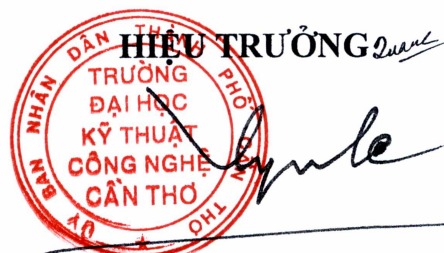 HIỆU TRƯỞNG
ỦY BAN NHÂN DÂN THÀNH PHỐ CẦN THƠ
TRƯỜNG
ĐẠI HỌC
KỸ THUẬT
CÔNG NGHỆ
CẦN THƠ